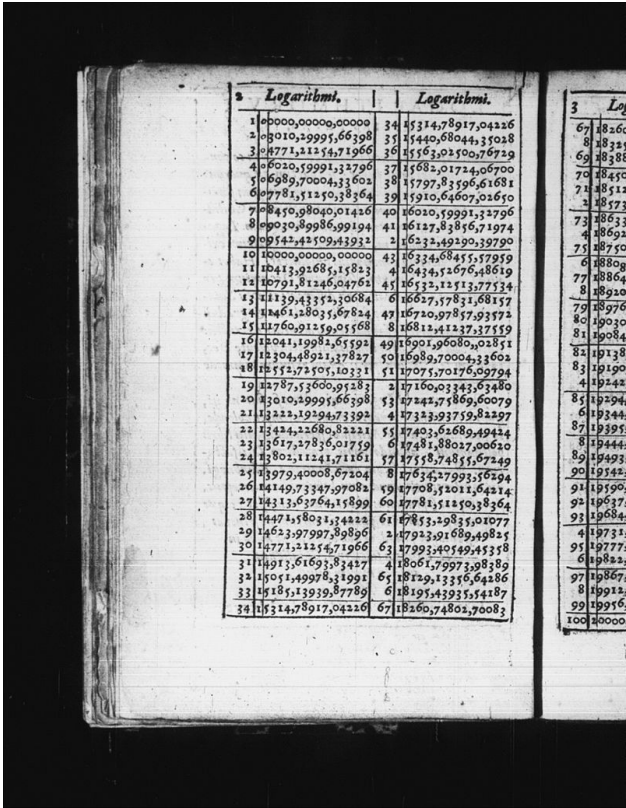 2 Logarithmi. Logarithmi.
1 00000,00000,00000 34 15314,78917,04226
2 03010,29995,66398 35 15440,68044,35028
3 04771,21254,71966 36 15563,02500,76729
4 06020,59991,32796 37 15682,01724,06700
5 06989,70004,33602 38 15797,83596,61681
6 07781,51250,38364 39 15910,64607,02650
7 08450,98040,01426 40 16020,59991,32796
8 09030,89986,99194 41 16127,83856,71974
9 09542,42509,43932 2 16232,49290,39790
10 10000,00000,00000 43 16334,68455,57959
11 10413,92685,15823 4 16434,52676,48619
12 10791,81246,04762 45 16532,12513,77534
13 11139,43352,30684 6 16627,57831,68157
14 11461,28035,67824 47 16720,97857,93572
15 11760,91259,05568 8 16812,41237,37559
16 12041,19982,65592 49 16901,96080,,02851
17 12304,48921,37827 50 16989,70004,33602
18 12552,72505,10331 51 17075,70176,09794
19 12787,53600,95283 2 17160,03343,63480
20 13010,29995,66398 53 17242,75869,60079
21 13222,19294,73392 4 17323,93759,82297
22 13424,22680,82221 55 17403,62689,49424
23 13617,27836,01759 6 17481,88027,00620
24 13802,11241,71161 57 17558,74855,67249
25 13979,40008,67204 8 17634,27993,56294
26 14149,73347,97082 59 17708,52011,64214
27 14313,63764,15899 60 17781,51250,38364
28 14471,58031,34222 61 17853,29835,01077
29 14623,97997,89896 2 17923,91689,49825
30 14771,21254,71966 63 17993,40549,45358
31 14913,61693,83427 4 18061,79973,98389
32 15051,49978,31991 65 18129,13356,64286
33 15185,13939,87789 6 18195,43935,54187
34 15314,78917,04226 67 18260,74802,70083
3 Log
67 18260
8 18325
69 18388
70 18450
71 18512
2 18573
73 18633
4 18692
75 18750
6 18808
77 18864
8 18920
79 18976
80 19030
81 19084
82 19138
83 19190
4 19242
85 19294
6 19344
87 19395
8 19444
89 19493
90 19542
91 19590
92 19637
93 19684
4 19731
95 19777
6 19822
97 19867
8 19912
99 19956
100 20000